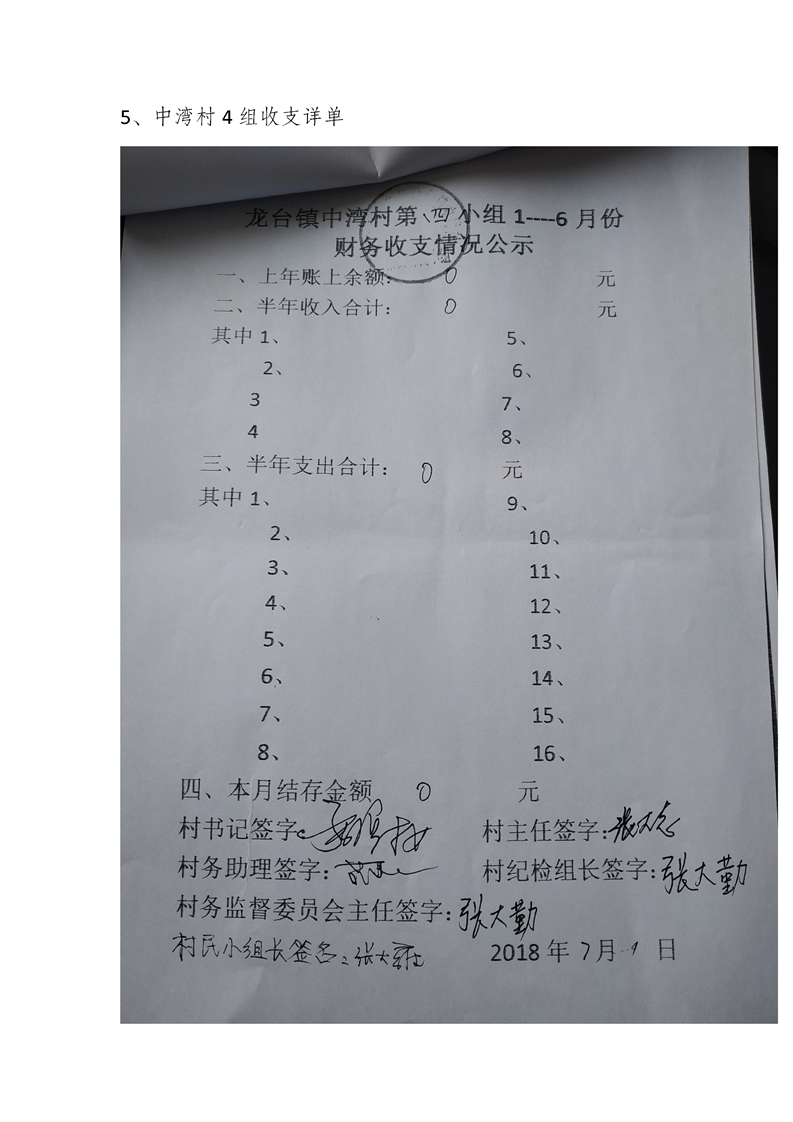 5、中湾村4组收支详单
龙台镇中湾村第四小组1----6月份
财务收支情况公示
一、上年账上余额: 0 元
二、半年收入合计: 0 元
其中1、 5、
2、 6、
3 7、
4 8、
三、半年支出合计: 0 元
其中1、 9、
2、 10、
3、 11、
4、 12、
5、 13、
6、 14、
7、 15、
8、 16、
四、本月结存金额 0 元
村书记签字: 村主任签字:张大志
村务助理签字: 村纪检组长签字:张大勤
村务监督委员会主任签字:张大勤
村民小组长签名:张大
2018年7月 日